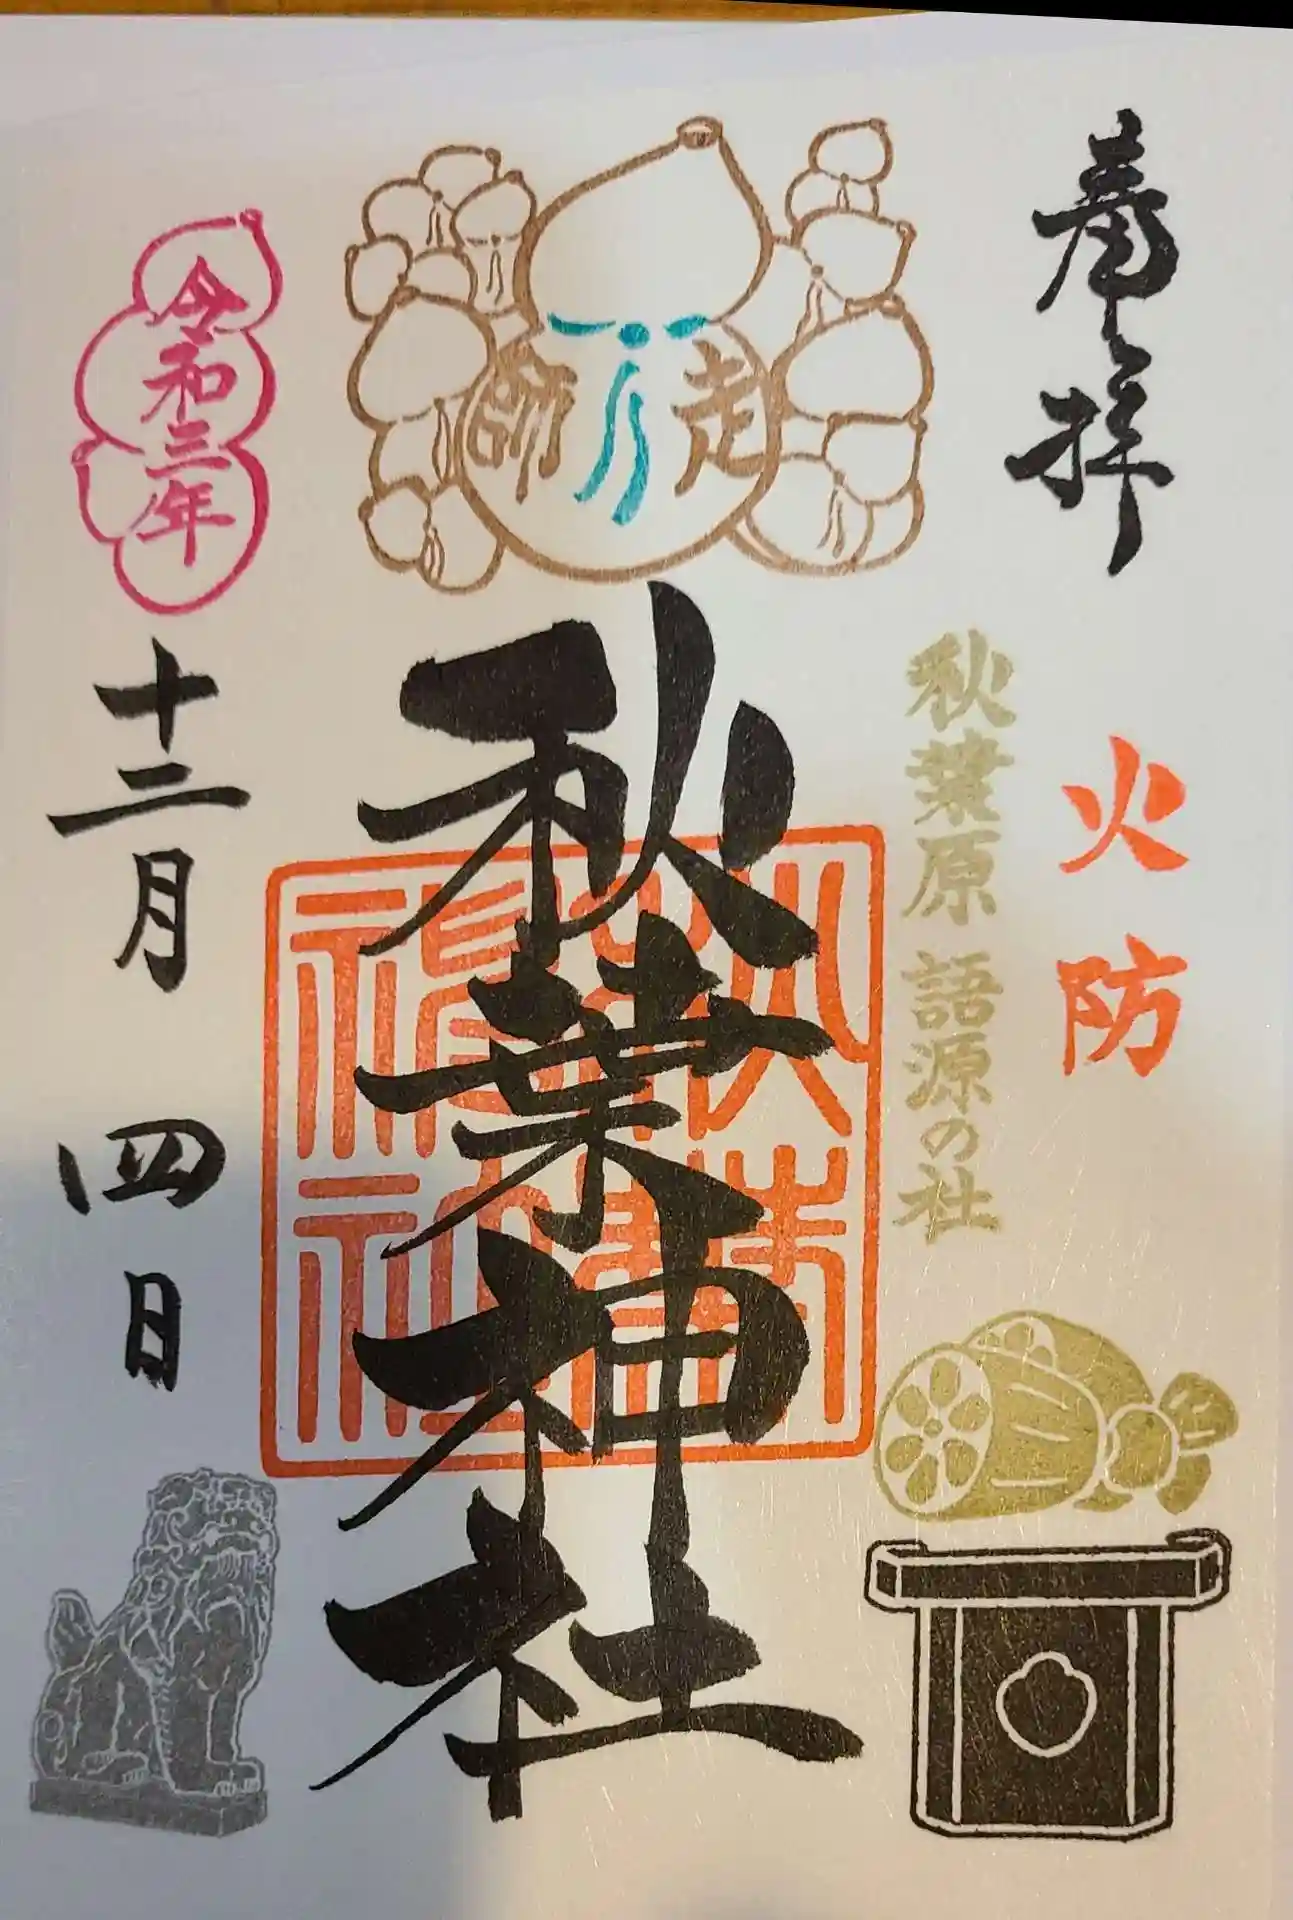 奉拝
火防
秋葉原 語源の社
走師
秋葉神社
令和三年
十二月 四日